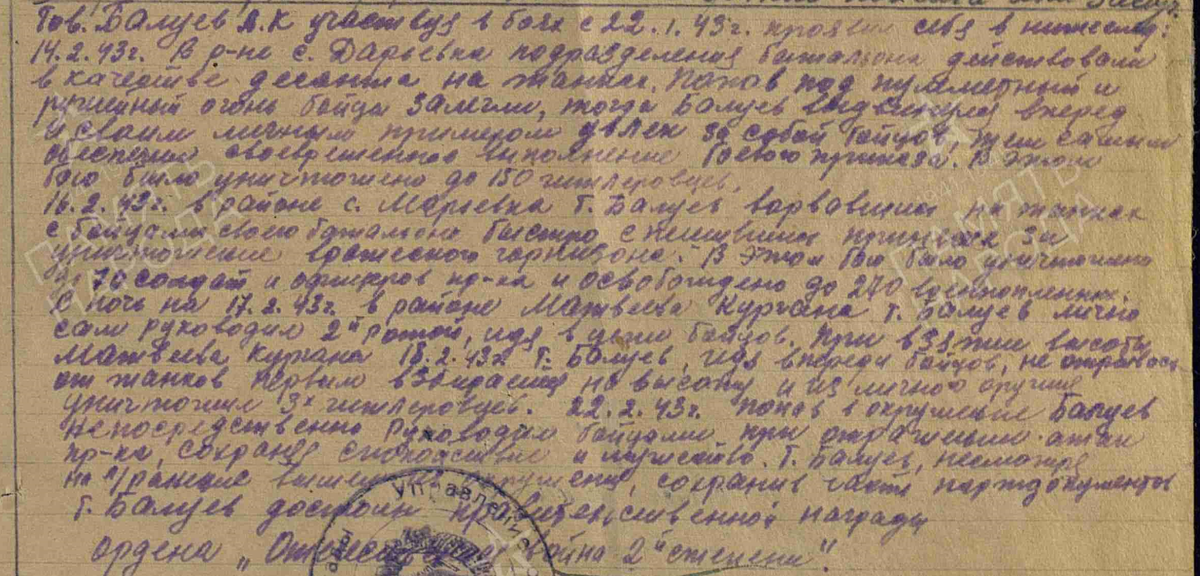 Тов. Балуев А.К участвуя в боях с 22.1.43г. проявил себя в нижеслед:
14.2.43г. В р-не с. Дарьевка подразделения батальона действовали
в качестве десанта на танках. Попав под пулеметный и
ружейный огонь бойцы залегли, тогда Балуев выдвинулся вперед
и своим личным примером увлек за собой бойцов, тем самым
обеспечил своевременное выполнение боевого приказа. В этом
бою было уничтожено до 150 гитлеровцев.
16.2.43г. в районе с. Марьевка т. Балуев ворвавшись на танках
с бойцами своего батальона быстро спешившись приступил за
уничтожение вражеского гарнизона. В этом бою было уничтожено
до 70 солдат и офицеров пр-ка и освобождено до 270 военнопленных.
С ночь на 17.2.43г. в районе Матвеева Кургана т. Балуев лично
сам руководил 2й ротой, идя в цепи бойцов. При взятии высоты
Матвеева Кургана 18.2.43г. т. Балуев, идя впереди бойцов, не отрываясь
от танков первым взбирается на высоту и из личного оружия
уничтожил 3х гитлеровцев. 22.2.43г. попав в окружение Балуев
непосредственно руководил бойцами при отражении атак
пр-ка, сохраняя спокойствие и мужество. Т. Балуев, несмотря
на ранение вышел из окружения, сохранив части партдокументов
Т. Балуев достоин правительственной награды
ордена „Отечественная война 2й степени".
Управление
ПАМЯТЬ НАРОДА
ПАМЯТЬ НАРОДА